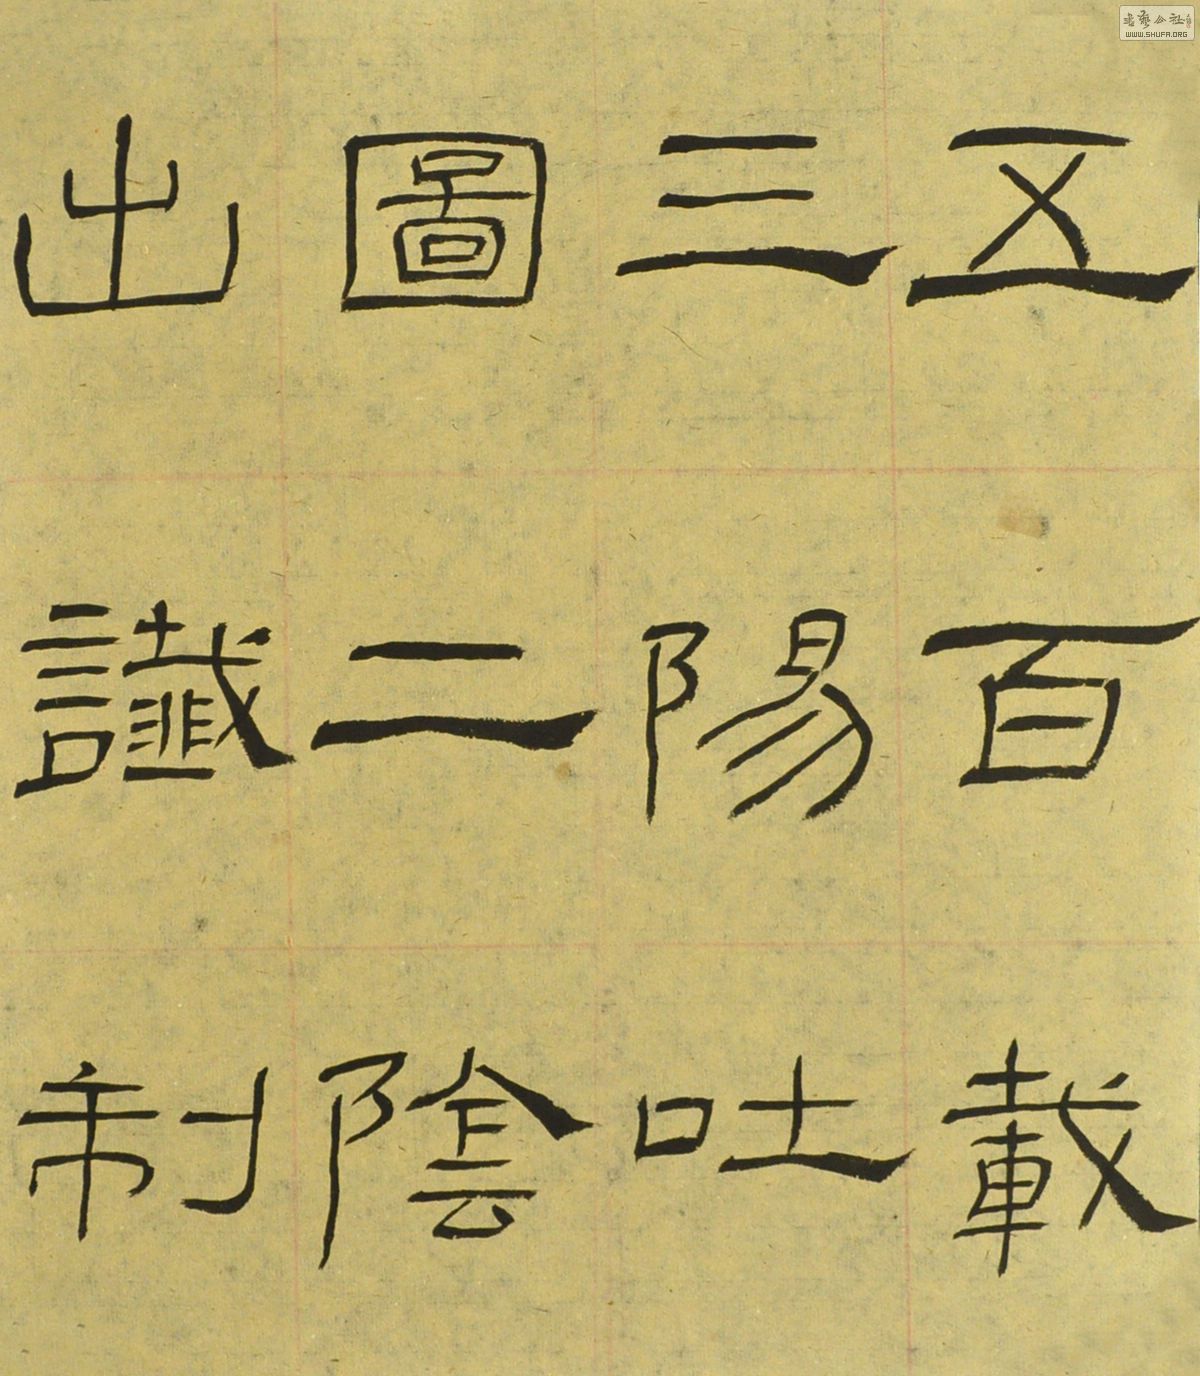 五百載
三陽吐
圖二陰
出讖制
書藝公社
WWW.SHUFA.ORG